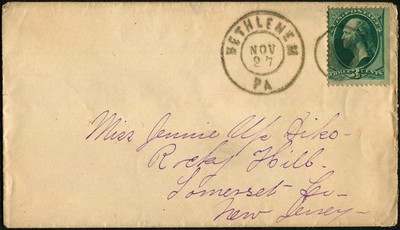 BETHLEHEM
NOV
27
PA
THREE CENTS
Miss Jennie
Rocky Hill.
Somerset Co-
New Jersey-